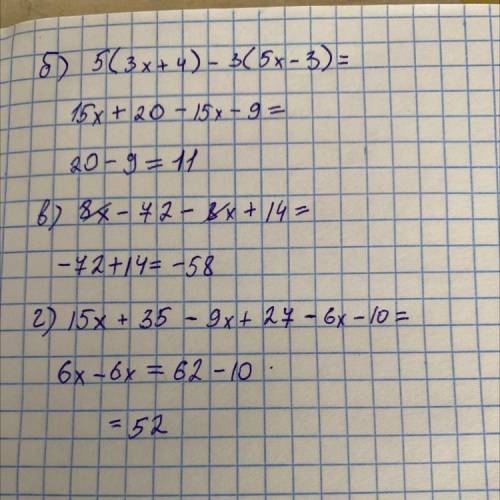 б) 5(3x+4) - 3(5x-3) =
15x + 20 - 15x - 9 =
20 - 9 = 11
в) 8x - 72 - 8x + 14 =
-72 + 14 = -58
г) 15x + 35 - 9x + 27 - 6x - 10 =
6x - 6x = 62 - 10
= 52